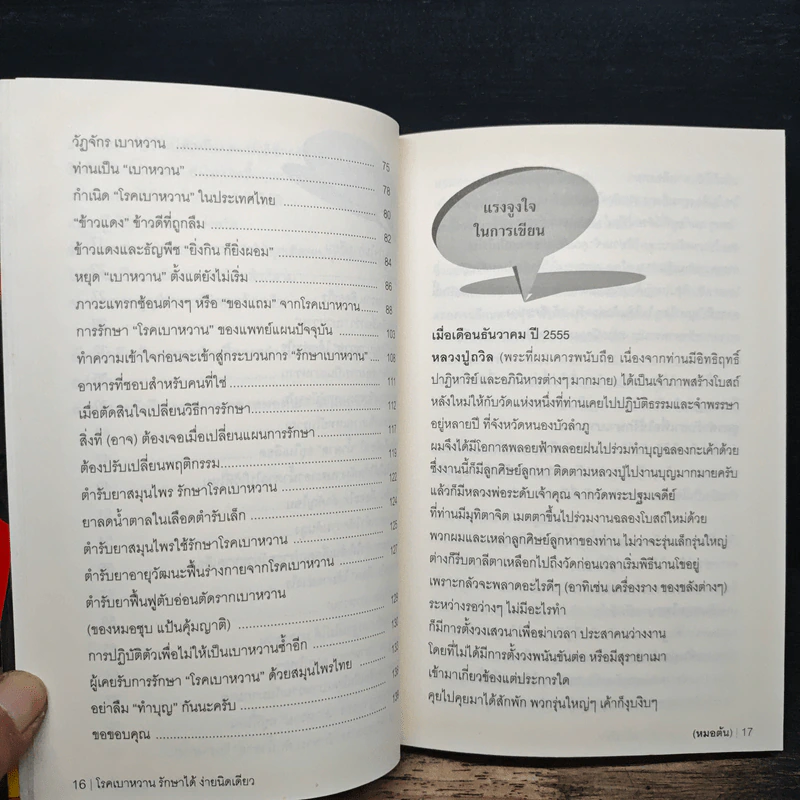 วัฏจักร เบาหวาน 75
ท่านเป็น “เบาหวาน” 78
กำเนิด “โรคเบาหวาน” ในประเทศไทย 80
“ข้าวแดง” ข้าวดีที่ถูกลืม 82
ข้าวแดงและธัญพืช “ยิ่งกิน ก็ยิ่งผอม” 84
หยุด “เบาหวาน” ตั้งแต่ยังไม่เริ่ม 86
ภาวะแทรกซ้อนต่างๆ หรือ “ของแถม” จากโรคเบาหวาน 88
การรักษา “โรคเบาหวาน” ของแพทย์แผนปัจจุบัน 103
ทำความเข้าใจก่อนจะเข้าสู่กระบวนการ “รักษาเบาหวาน” 108
อาหารที่ชอบสำหรับคนที่ใช่ 111
เมื่อตัดสินใจเปลี่ยนวิธีการรักษา 112
สิ่งที่ (อาจ) ต้องเจอเมื่อเปลี่ยนแผนการรักษา 117
ต้องปรับเปลี่ยนพฤติกรรม 119
ตำรับยาสมุนไพร รักษาโรคเบาหวาน 122
ยาลดน้ำตาลในเลือดตำรับเล็ก 124
ตำรับยาสมุนไพรใช้รักษาโรคเบาหวาน 125
ตำรับยาอายุวัฒนะฟื้นร่างกายจากโรคเบาหวาน 127
ตำรับยาฟื้นฟูตับอ่อนตัดรากเบาหวาน
(ของหมอซุบ แป้นคุ้มญาติ) 129
การปฏิบัติตัวเพื่อไม่ให้เป็นเบาหวานซ้ำอีก 130
ผู้เคยรับการรักษา “โรคเบาหวาน” ด้วยสมุนไพรไทย 132
อย่าลืม “ทำบุญ” กันนะครับ
ขอขอบคุณ
16 | โรคเบาหวาน รักษาได้ ง่ายนิดเดียว
แรงจูงใจ
ในการเขียน
เมื่อเดือนธันวาคม ปี 2555
หลวงปู่ถวิล (พระที่ผมเคารพนับถือ เนื่องจากท่านมีอิทธิฤทธิ์
ปาฏิหาริย์ และอภินิหารต่างๆ มากมาย) ได้เป็นเจ้าภาพสร้างโบสถ์
หลังใหม่ให้กับวัดแห่งหนึ่งที่ท่านเคยไปปฏิบัติธรรมและจำพรรษา
อยู่หลายปี ที่จังหวัดหนองบัวลำภู
ผมจึงได้มีโอกาสพลอยฟ้าพลอยฝนไปร่วมทำบุญฉลองกะเค้าด้วย
ซึ่งงานนี้ก็มีลูกศิษย์ลูกหา ติดตามหลวงปู่ไปงานบุญมากมายครับ
แล้วก็มีหลวงพ่อระดับเจ้าคุณ จากวัดพระปฐมเจดีย์
ที่ท่านมีมุทิตาจิต เมตตาขึ้นไปร่วมงานฉลองโบสถ์ใหม่ด้วย
พวกผมและเหล่าลูกศิษย์ลูกหาของท่าน ไม่ว่าจะรุ่นเล็กรุ่นใหญ่
ต่างก็รีบตาลีตาเหลือกไปถึงวัดก่อนเวลาเริ่มพิธีนานโขอยู่
เพราะกลัวจะพลาดอะไรดีๆ (อาทิเช่น เครื่องราง ของขลังต่างๆ)
ระหว่างรอว่างๆ ไม่มีอะไรทำ
ก็มีการตั้งวงเสวนาเพื่อฆ่าเวลา ประสาคนว่างงาน
โดยที่ไม่ได้มีการตั้งวงพนันขันต่อ หรือมีสุรายาเมา
เข้ามาเกี่ยวข้องแต่ประการใด
คุยไปคุยมาได้สักพัก พวกรุ่นใหญ่ๆ เค้าก็งุบงิบๆ
(หมอต้น) | 17